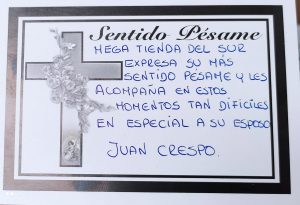 Sentido Pésame
MEGA TIENDA DEL SUR
EXPRESA SU MÁS
SENTIDO PÉSAME Y LES
ACOMPAÑA EN ESTOS
MOMENTOS TAN DIFICILES
EN ESPECIAL A SU ESPOSO
JUAN CRESPO.